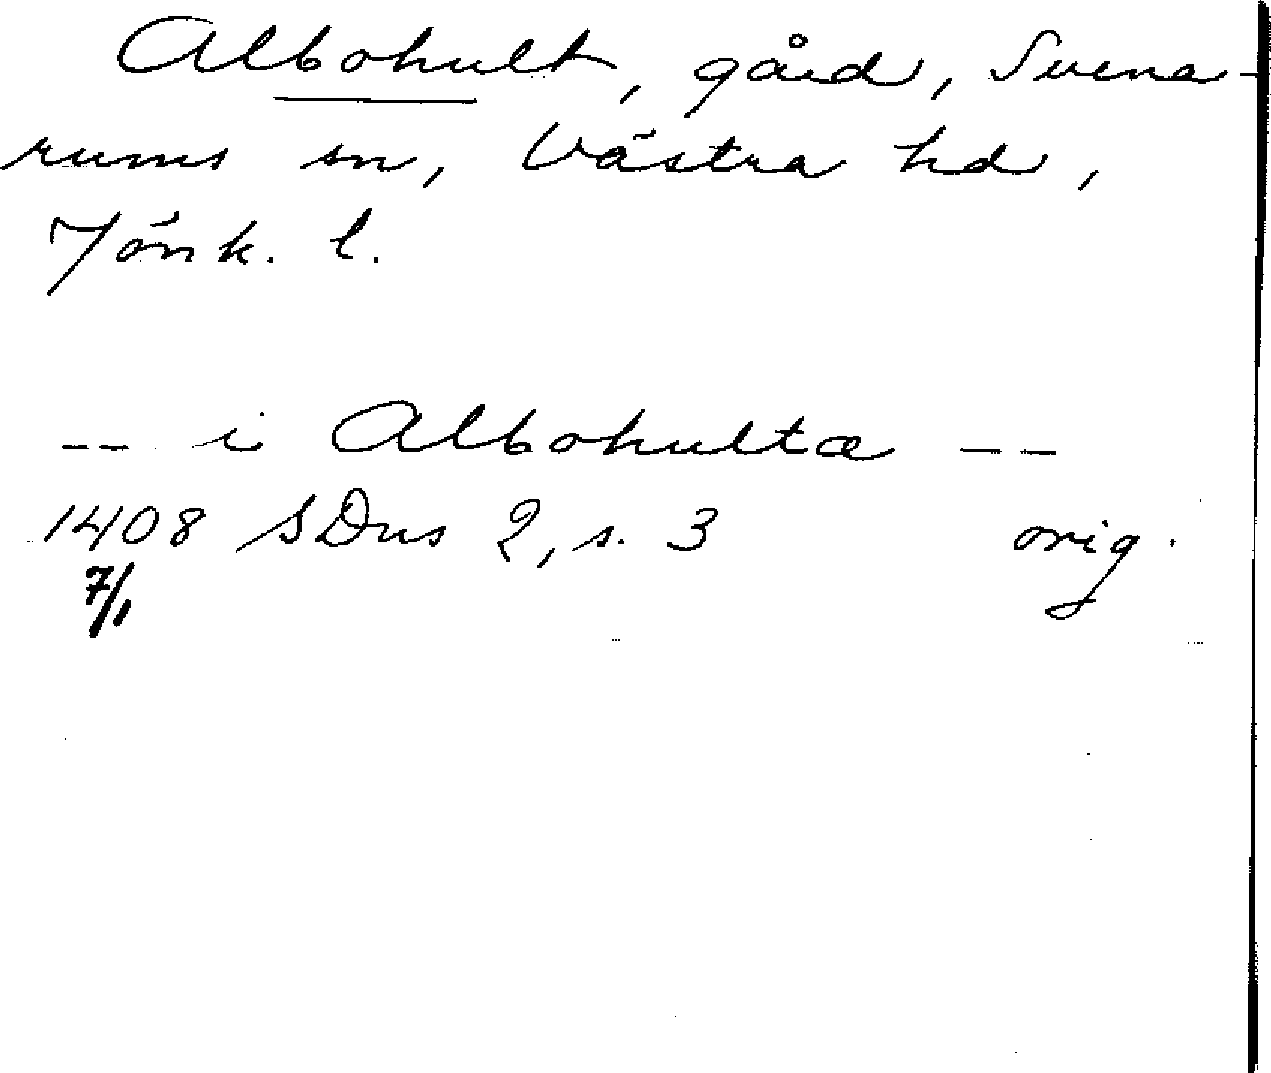 Albohult, gård, Svena-
rums sn, Västra hd,
Jönk. l.
-- i Albohultæ --
1408 SDns 2, s. 3 orig.
7/1